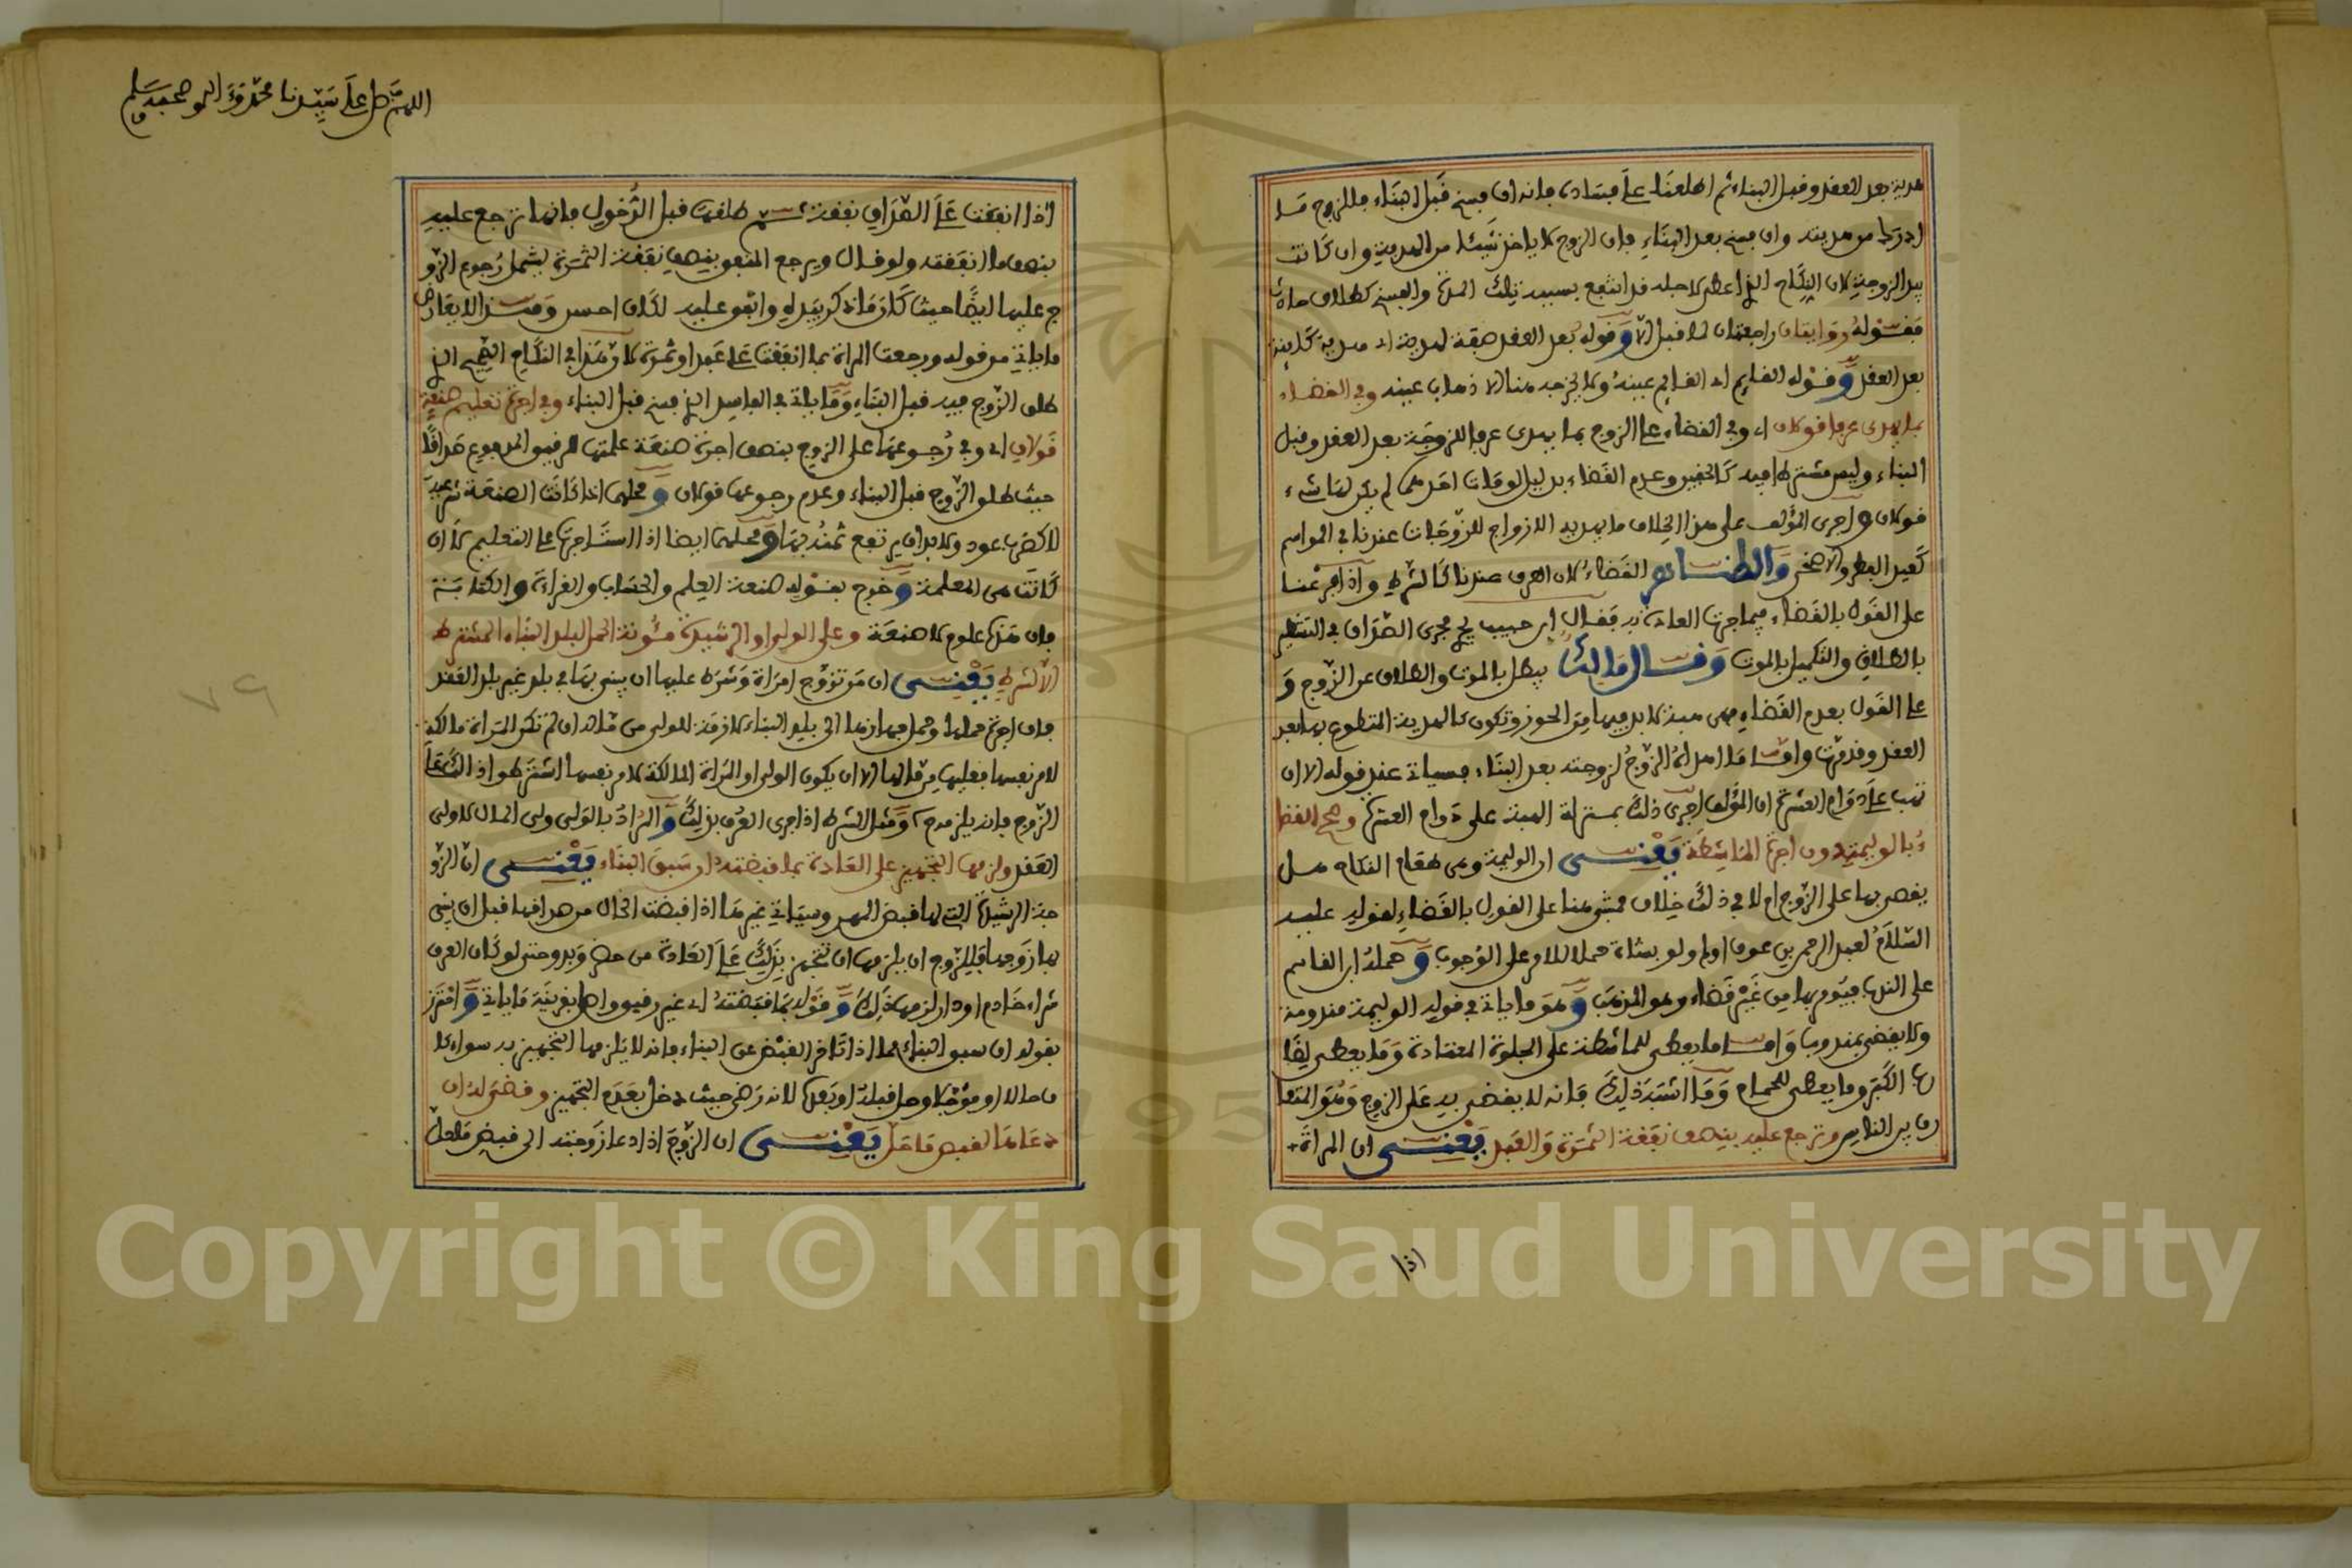 هدية بعد العقد وقبل البناء ثم اطلعنا على فساده فانه ان فسخ قبل البناء فللزوج ما
ادرك من هديته وان فسخ بعد البناء فان الزوج لا ياخذ شيئا من الهدية وان كانت
بيد الزوجة لان الذي اعطى لاجله قد انتفع بسببه تلك المدة والفسخ كطلاق حادث
فقوله روايتان راجعتان لما قبل الا وقوله بعد العقد صفة لهدية اي هدية كاينة
بعد العقد وقوله القايم اي القايم عينه ولا يخرجه منا الا ذهاب عينه وفي القضاء
بما يهدى عرفا قولان اي وفي القضاء على الزوج بما يهدى عرفا للزوجة بعد العقد وقبل
البناء وليس مشترطا فيه كالخفين وعدم القضاء بدليل لو مات احدهما لم يكن لها شيء
قولان واجرى المؤلف على هذا الخلاف ما يهديه الازواج للزوجات عندنا في المواسم
كعيد الفطر والاضحى والظاهر القضاء لان العرف عندنا كالشرط واذا فرعنا
على القول بالقضاء فيما جرت العادة به فقال ابن حبيب يجري مجرى الصداق في التشطير
بالطلاق والتكميل بالموت وقال مالك يبطل بالموت والطلاق عن الزوج و
على القول بعدم القضاء فهي هبة لا بد فيها من الحوز وتكون كالهدية المتطوع بها بعد
العقد وقد مرت واما ما اهداه الزوج لزوجته بعد البناء فسياتي عند قوله الا ان
تهب على دوام العشرة ان المؤلف اجرى ذلك بمنزلة الهبة على دوام العشرة وصح القضا
ء بالوليمة دون اجرة الماشطة يعني ان الوليمة وهي طعام النكاح هل
يقضى بها على الزوج ام لا في ذلك خلاف فمشى هنا على القول بالقضاء لقوله عليه
السلام لعبد الرحمن بن عوف اولم ولو بشاة حملا للامر على الوجوب وحمله ابن القاسم
على الندب فيؤمر بها من غير قضاء وهو المذهب وهو ما ياتي في قوله الوليمة مندوبة
ولا يقضى بمندوب واما ما يعطى للماشطة على الجلوة المعتادة وما يعطى لضا
رب الكبر وما يعطى للحمام وما اشبه ذلك فانه لا يقضى به على الزوج وهو المتعا
رف بين الناس وترجع عليه بنصف نفقة الثمرة والعبد يعني ان المراة
اذا
اللهم صل على سيدنا محمد وءاله وصحبه وسلم
اذا انفقت على الصداق نفقة ثم طلقت قبل الدخول فانها ترجع عليه
بنصف ما انفقته ولو قال ويرجع المنفق بنصف نفقة الثمرة ليشمل رجوع الزو
ج عليها ايضا حيث كان ما ذكر بيده وانفق عليه لكان احسن وهذا لا يعارض
ما ياتي من قوله ورجعت المراة بما انفقت على عبد او ثمرة لان هذا في النكاح الصحيح الذي
طلق الزوج فيه قبل البناء وما ياتي في الفاسد الذي فسخ قبل البناء وفي اجرة تعليم صنعة
قولان اي وفي رجوعها على الزوج بنصف اجرة صنعة علمتها للرقيق المدفوع صداقا
حيث طلق الزوج قبل البناء وعدم رجوعها قولان ومحلهما اذا كانت الصنعة شرعية
لا كضرب عود ولا بد ان يرتفع ثمنه بها ومحلهما ايضا اذا استاجرت على التعليم لا ان
كانت هي المعلمة وخرج بقوله صنعة العلم والحساب والقراءة والكتابة
فان هذه علوم لا صنعة وعلى الولي او الرشيدة مئونة الحمل لبلد البناء المشترط
الا لشرط يعني ان من تزوج امراة وشرط عليها ان يبني بها في بلد غير بلد العقد
فان اجرة حملها وحمل جهازها الى بلد البناء لازمة للولي من مالها ان لم تكن المراة مالكة
لامر نفسها فعليها من مالها الا ان يكون الولي او المراة المالكة لامر نفسها اشترطوا ذلك على
الزوج فانه يلزمه ومثل الشرط اذا جرى العرف بذلك والمراد بالولي ولي المال لا ولي
العقد ولزمها التجهيز على العادة بما قبضته ان سبق البناء يعني ان الزو
جة الرشيدة التي لها قبض المهر وسياتي غيرها اذا قبضت الحال من صداقها قبل ان يبني
بها زوجها فللزوج ان يلزمها ان تتجهز بذلك على العادة من حضر وبدو حتى لو كان العرف
شراء خادم او دار لزمها ذلك وقوله بما قبضته اي غير رقيق واصل بقرينة ما ياتي واحترز
بقوله ان سبق البناء عما اذا تاخر القبض عن البناء فانه لا يلزمها التجهيز به سواء كا
ن حالا او مؤجلا وحل قبله او بعده لانه رضي حيث دخل بعدم التجهيز وقضي له ان
دعاها لقبض ما حل يعني ان الزوج اذا دعا زوجته الى قبض ما حل
٧٩
Copyright © King Saud University
195